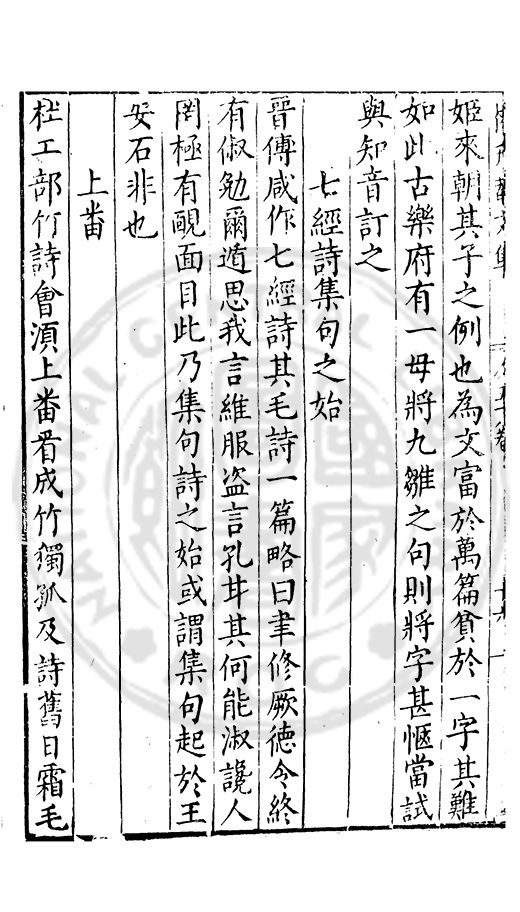 姬來朝其子之例也為文富於萬篇貧於一字其難
如此古樂府有一母將九雛之句則將字甚愜當試
與知音訂之
七經詩集句之始
晉傅咸作七經詩其毛詩一篇略曰聿修厥德令終
有俶勉爾遁思我言維服盗言孔甘其何能淑讒人
罔極有靦面目此乃集句詩之始或謂集句起於王
安石非也
上畨
杜工部竹詩會湏上畨看成竹獨孤及詩舊日霜毛